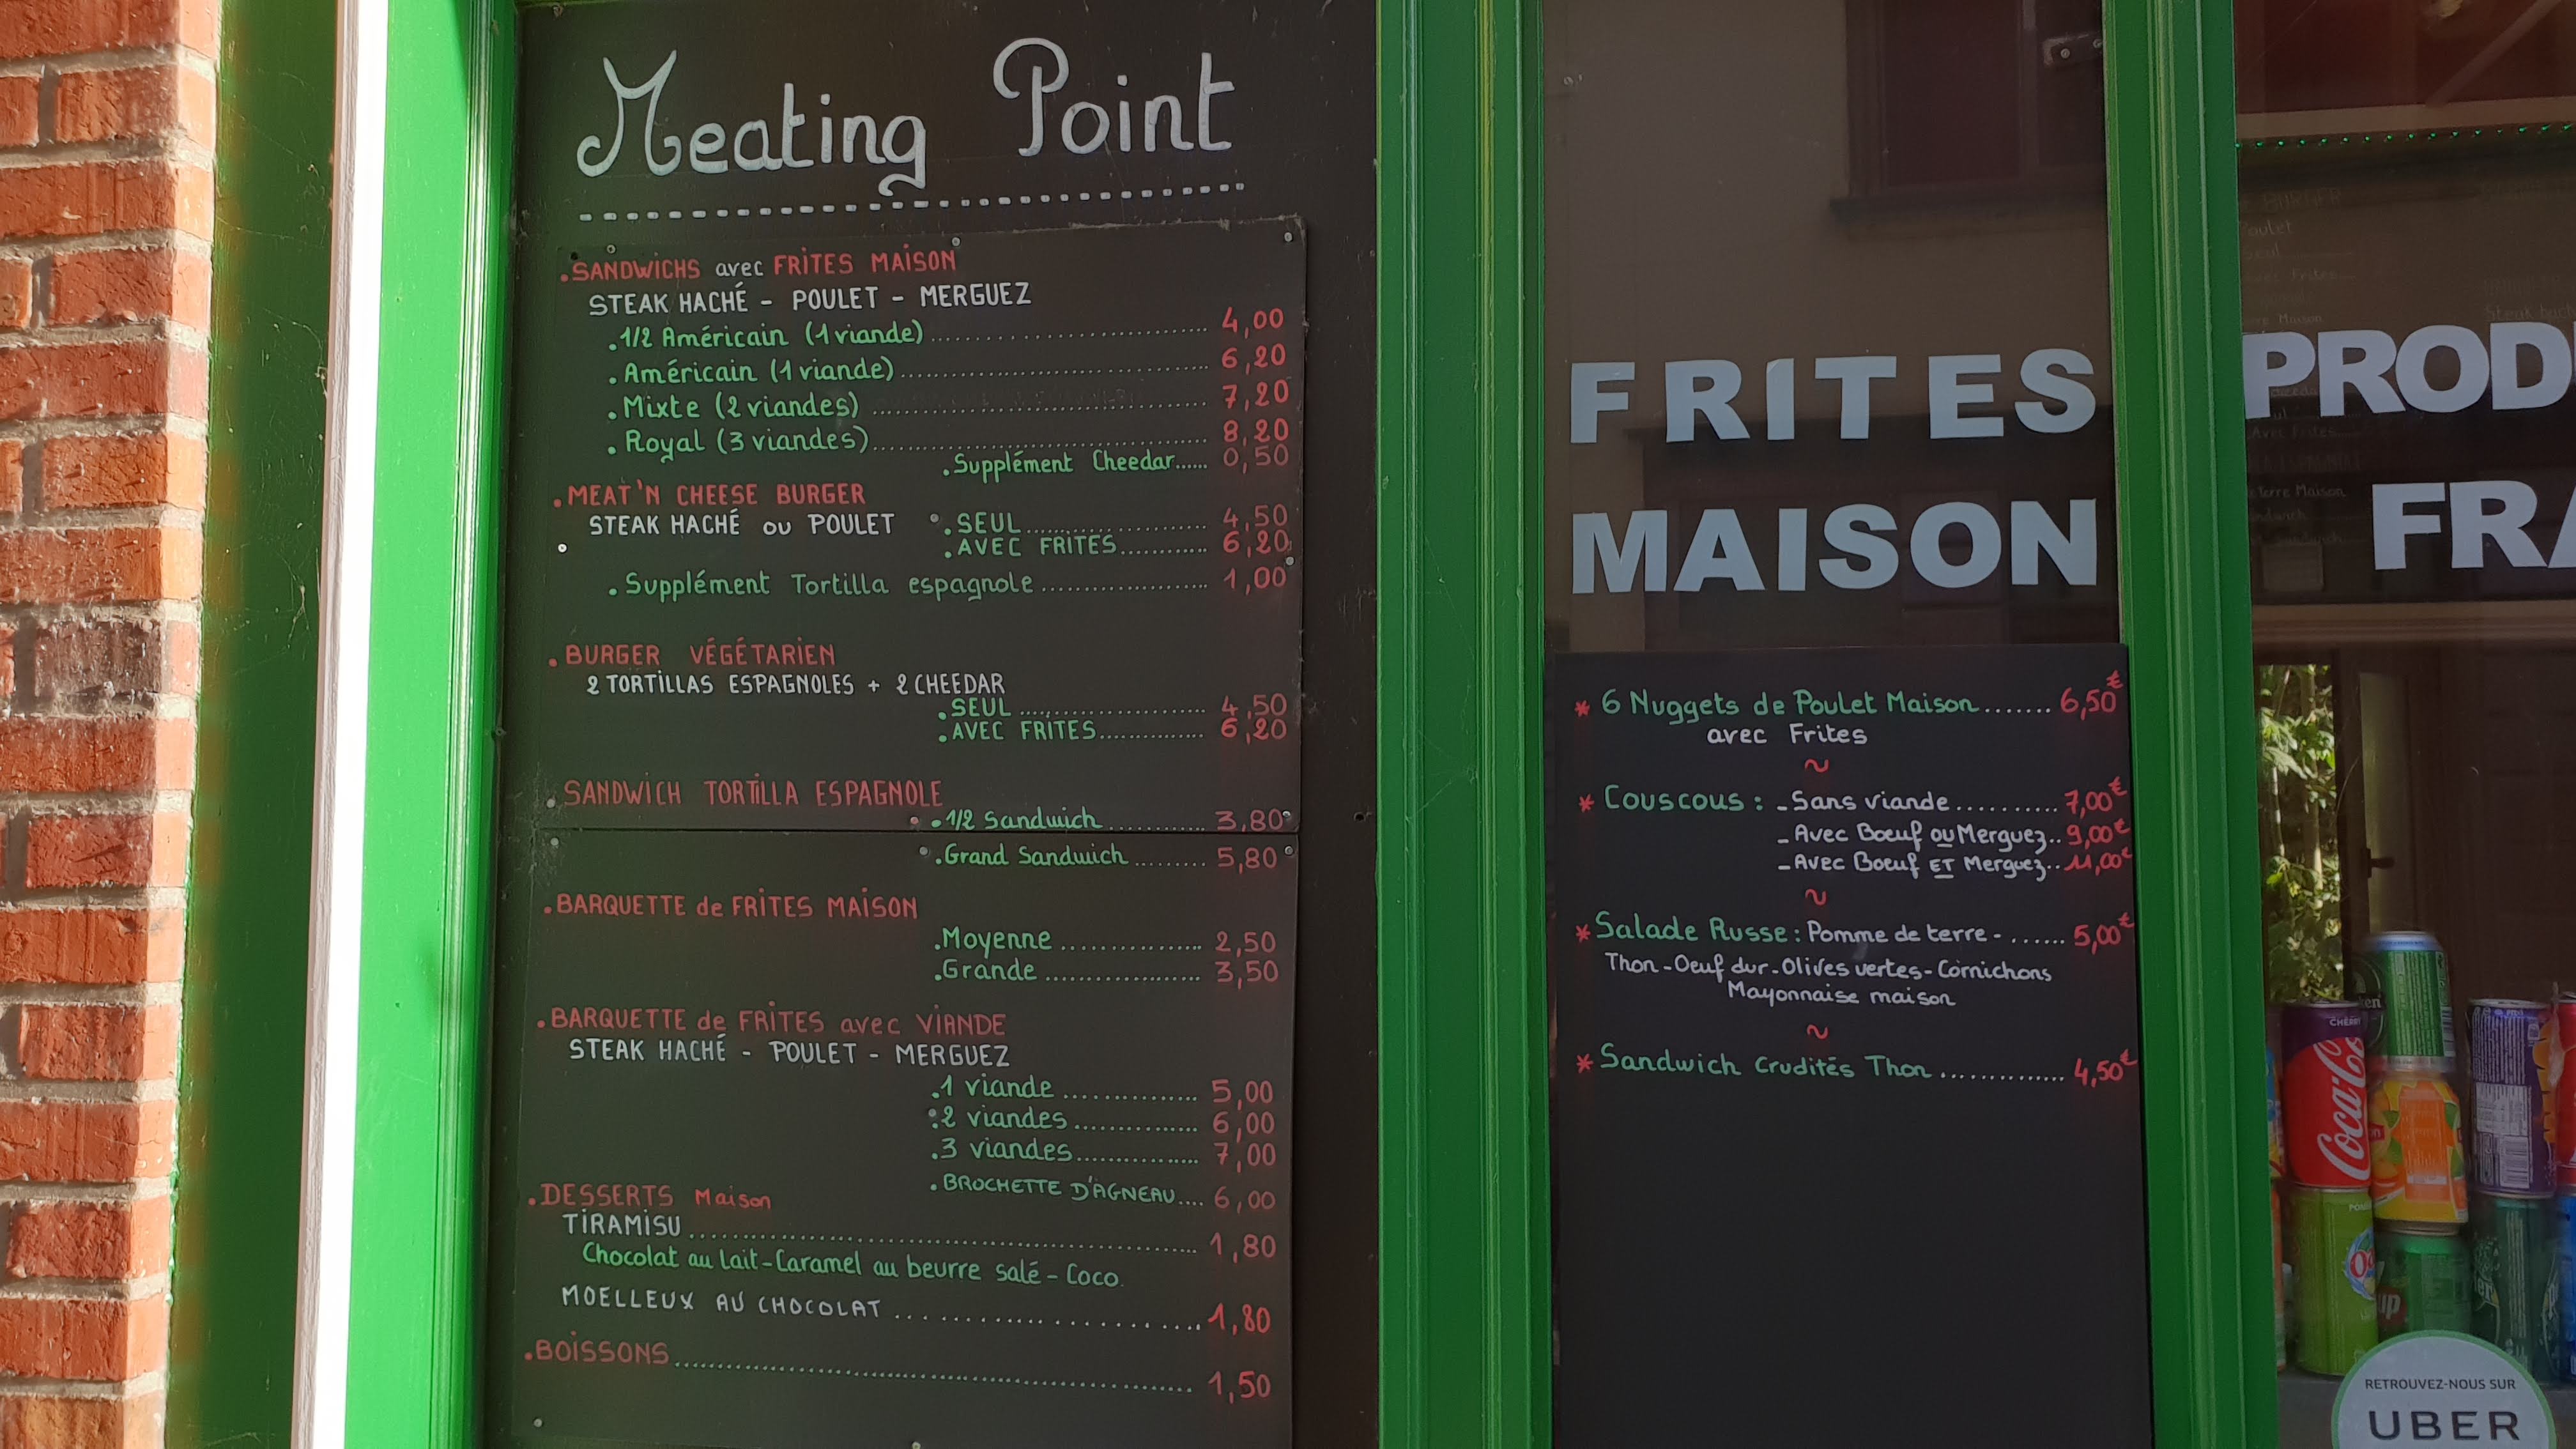 Meating Point
.SANDWICHS avec FRITES MAISON
STEAK HACHÉ - POULET - MERGUEZ
.1/2 Américain (1 viande) .......... 4,00
.Américain (1 viande) .......... 6,20
.Mixte (2 viandes) .......... 7,20
.Royal (3 viandes) .......... 8,20
.Supplément Cheedar...... 0,50
.MEAT'N CHEESE BURGER
STEAK HACHÉ ou POULET .SEUL .......... 4,50
.AVEC FRITES .......... 6,20
.Supplément Tortilla espagnole .......... 1,00
.BURGER VÉGÉTARIEN
2 TORTILLAS ESPAGNOLES + 2 CHEEDAR
.SEUL .......... 4,50
.AVEC FRITES .......... 6,20
.SANDWICH TORTILLA ESPAGNOLE
.1/2 Sandwich .......... 3,80
.Grand Sandwich .......... 5,80
.BARQUETTE de FRITES MAISON
.Moyenne .......... 2,50
.Grande .......... 3,50
.BARQUETTE de FRITES avec VIANDE
STEAK HACHÉ - POULET - MERGUEZ
.1 viande .......... 5,00
.2 viandes .......... 6,00
.3 viandes .......... 7,00
.BROCHETTE D'AGNEAU.... 6,00
.DESSERTS Maison
TIRAMISU .......... 1,80
Chocolat au lait - Caramel au beurre salé - Coco.
MOELLEUX AU CHOCOLAT .......... 1,80
.BOISSONS .......... 1,50
FRITES
MAISON
* 6 Nuggets de Poulet Maison ....... 6,50€
avec Frites
~
* Couscous : - Sans viande .......... 7,00€
- Avec Boeuf ou Merguez.. 9,00€
- Avec Boeuf ET Merguez.. 11,00€
~
* Salade Russe : Pomme de terre - ...... 5,00€
Thon - Oeuf dur - Olives vertes - Cornichons
Mayonnaise maison
~
* Sandwich Crudités Thon .............. 4,50€
PROD
FRA
Poulet
CHERRY
Coca-Co
up
RETROUVEZ-NOUS SUR
UBER